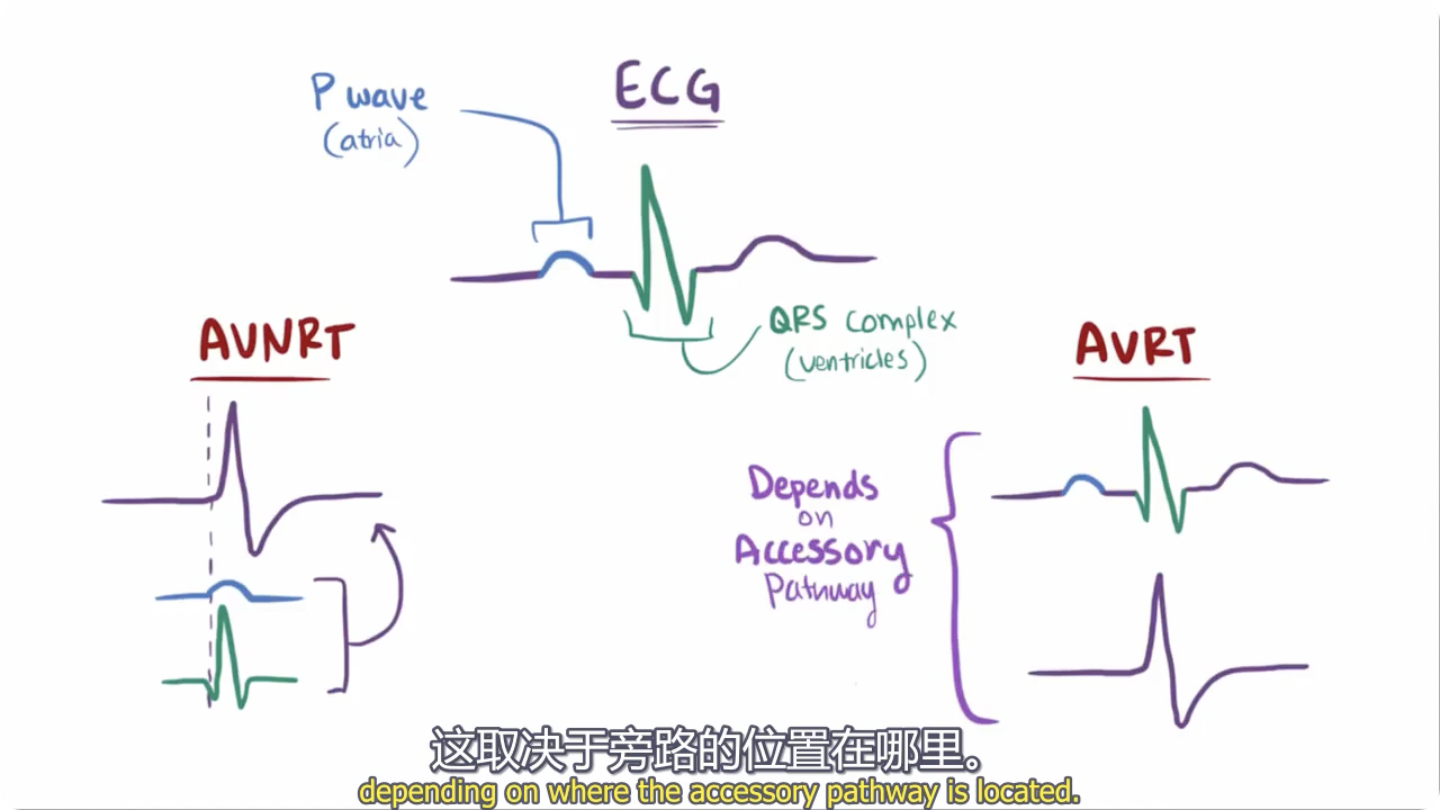 ECG
P wave
(atria)
QRS complex
(ventricles)
AVNRT
AVRT
Depends
on
Accessory
Pathway
这取决于旁路的位置在哪里。
depending on where the accessory pathway is located.